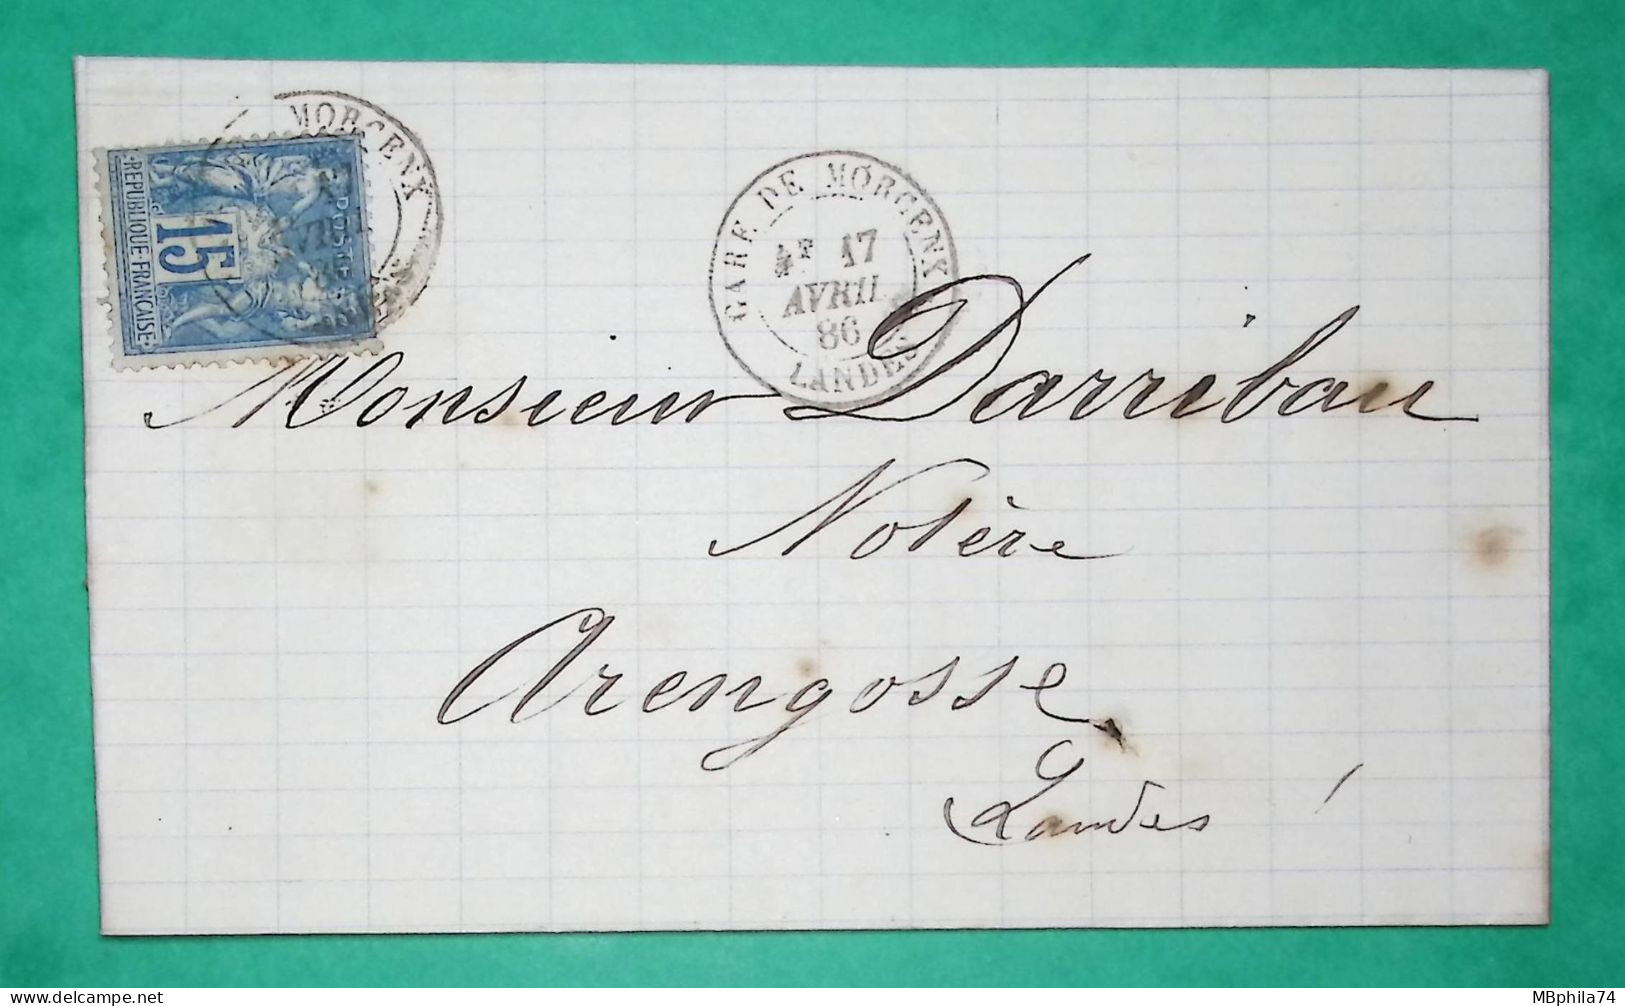 MORCENX
POSTES
15
REPUBLIQUE·FRANÇAISE
GARE DE MORCENX
17
AVRIL
86
LANDES
Monsieur Darribau
Notère
Arengosse
Landes
MBphila74